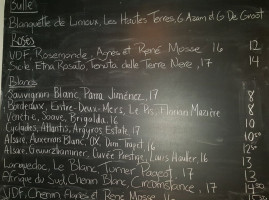 Bulle
Blanquette de Limoux, Les Hautes Terres, G Azam & G De Groot
Rosés
VDF, Rosemonde, Agnès et René Mosse 16 12
Sicile, Etna Rosato, Tenuta delle Terre Nere, 17 14
Blancs
Sauvignon Blanc, Parra Jiménez, 17 8
Bordeaux, Entre-Deux-Mers, Le Pis, Florian Mazière 8
Vénétie, Soave, Brigalda, 16 10
Cyclades, Atlantis, Argyros Estate, 17 10
Alsace, Auxerrois Blanc, Dom. Trapet, 16
Alsace, Gewurztraminer, Cuvée Prestige, Louis Hauller, 16
Languedoc, Le Blanc, Turner Pageot, 17 13
Afrique du Sud, Chenin Blanc, Circumstance, 17
René Mosse 16